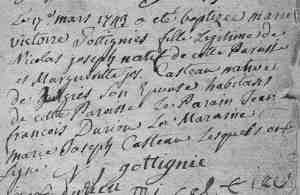 Le 17e mars 1743 a eté baptizee marie
victoire Gottignies fille Legitime de
Nicolas joseph natif de cette Paroisse
et Margueritte js. Casteau native
de son Epouse habitans
de cette Paroisse Le Parain Jean
francois Durieu La Maraine
marie Joseph Casteau Lesquels ont
signe
gottignie